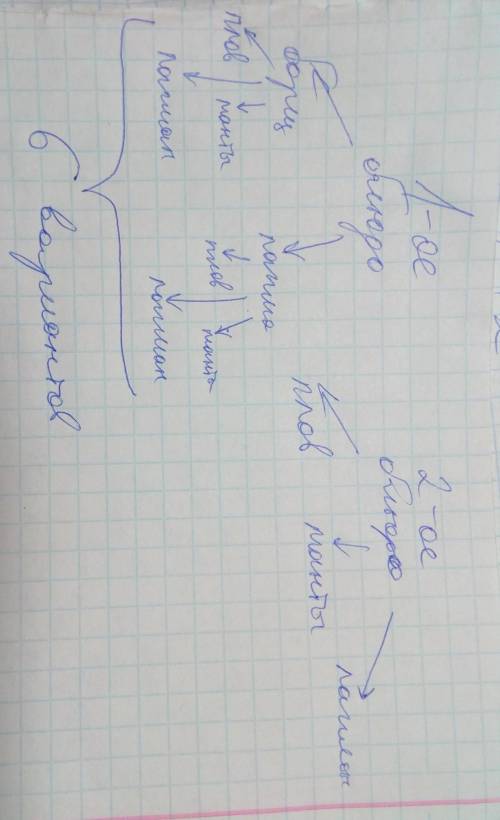 1-ое
блюдо
2-ое
блюдо
борщ
лапша
плов
манты
лагман
плов
манты
лагман
плов
манты
лагман
6 вариантов